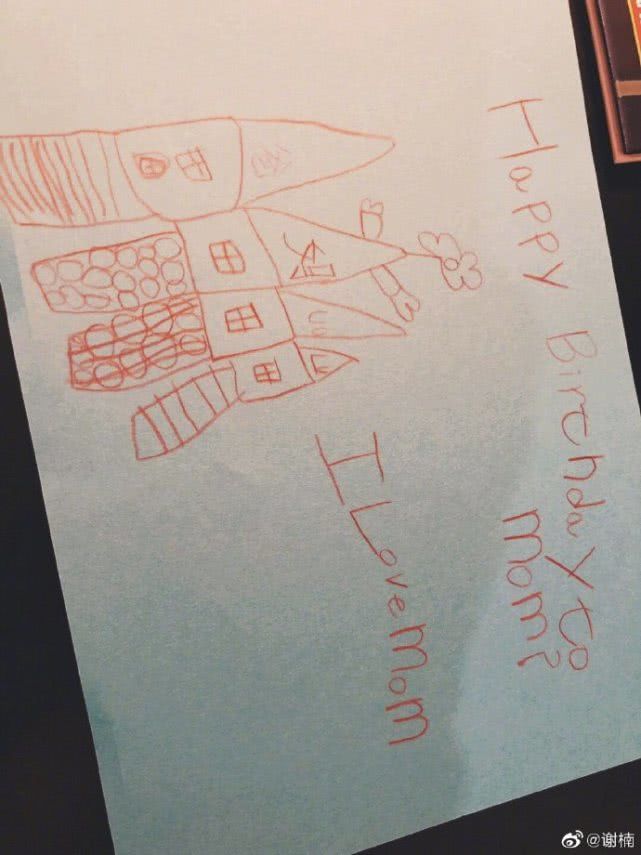 Happy Birthday to
mom?
I Love mom
@谢楠